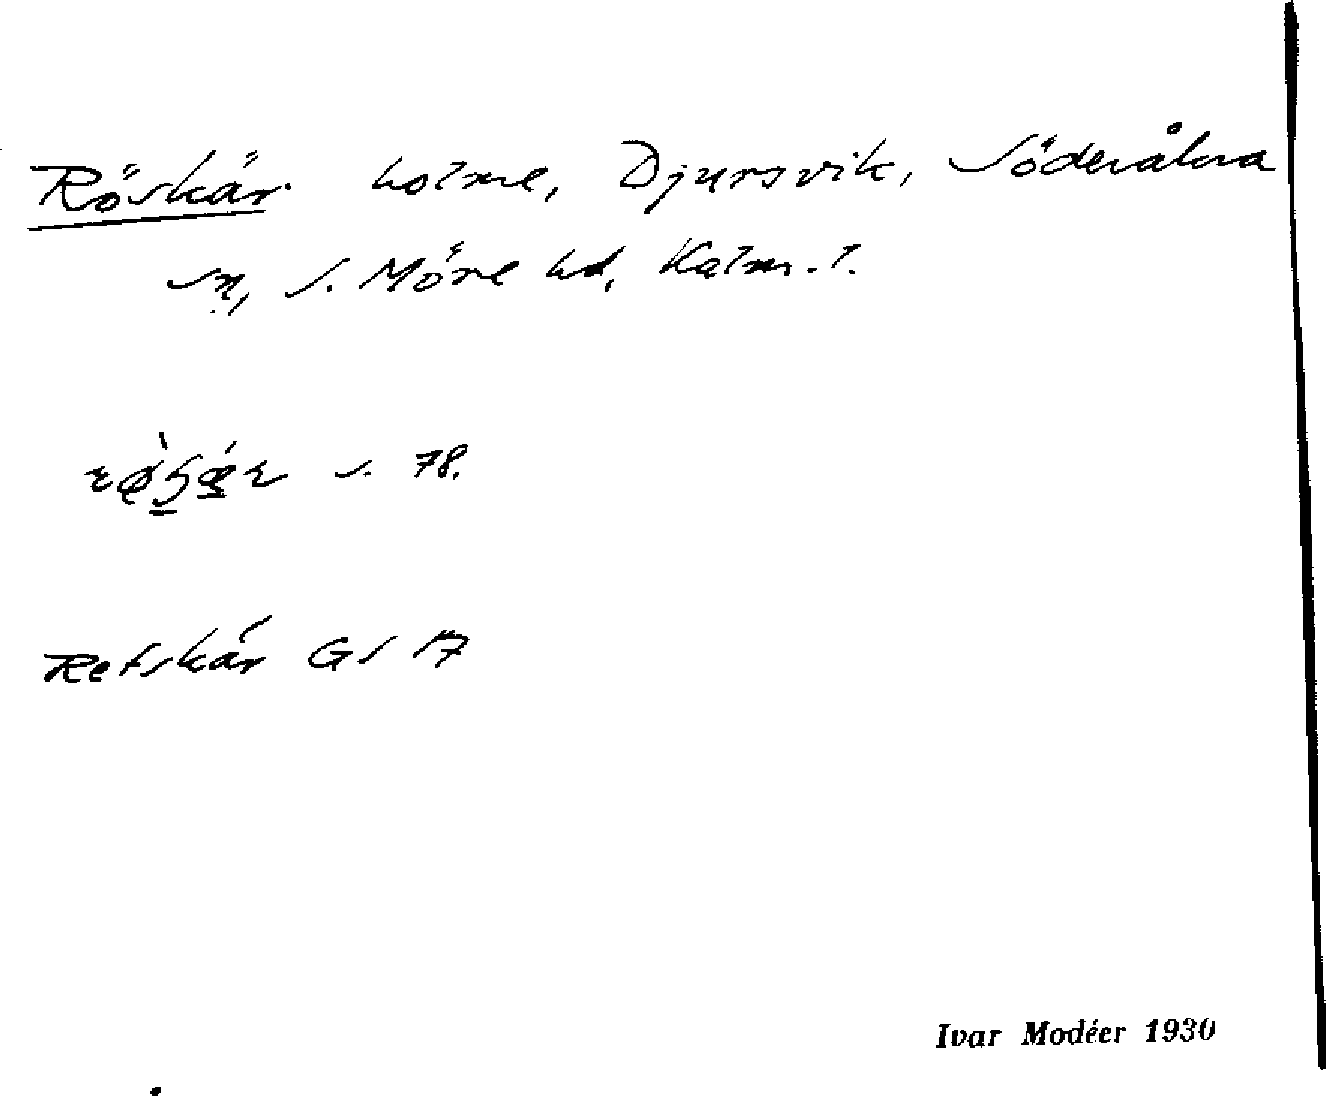 Röskär holme, Djursvik, Söderåkra
sn, S. Möre hd, Kalm. l.
s. 78.
Refskär GS 17
Ivar Modéer 1930